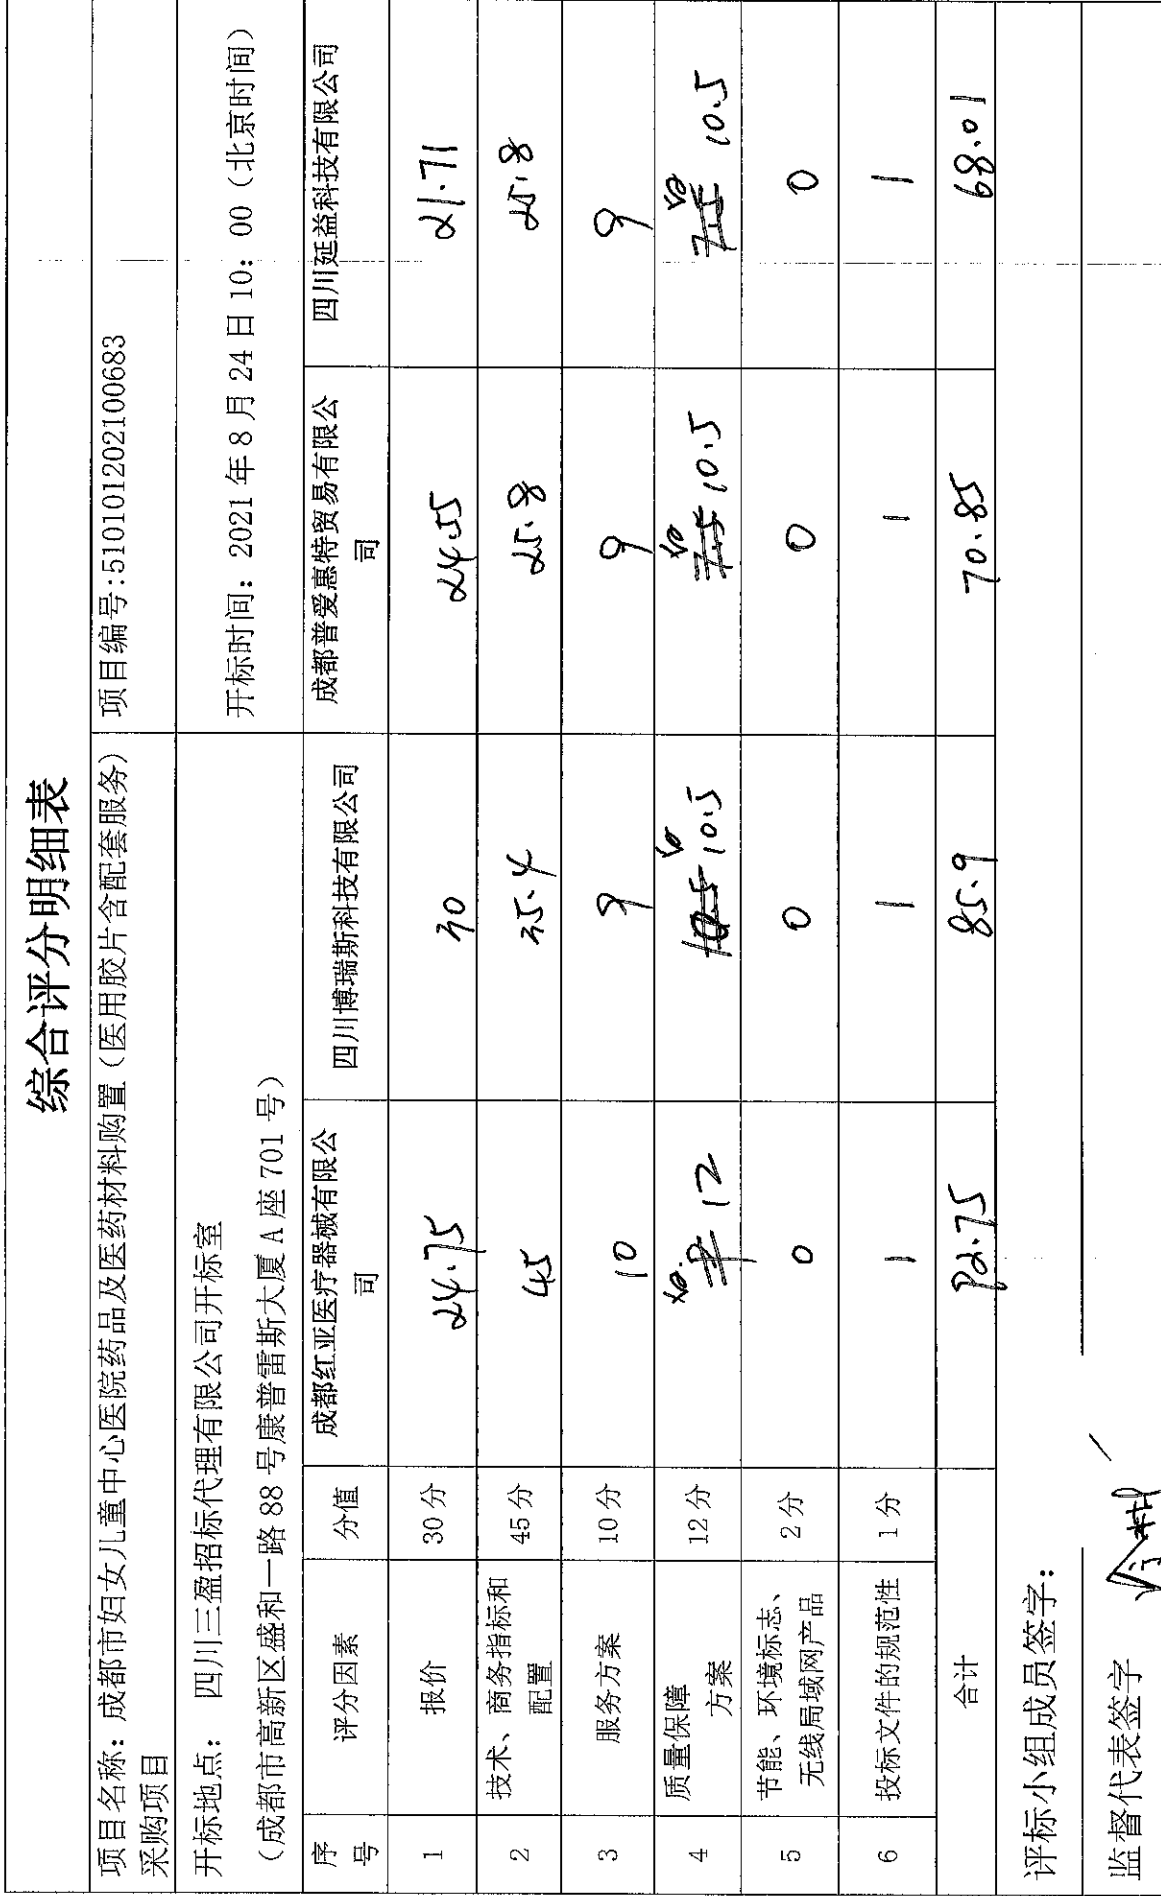 综合评分明细表
项目名称：成都市妇女儿童中心医院药品及医药材料购置（医用胶片含配套服务）采购项目 项目编号:510101202100683
开标地点： 四川三盈招标代理有限公司开标室
（成都市高新区盛和一路 88 号康普雷斯大厦 A 座 701 号） 开标时间：2021 年 8 月 24 日 10：00（北京时间）
序号 评分因素 分值 成都红亚医疗器械有限公司 四川博瑞斯科技有限公司 成都普爱惠特贸易有限公司 四川延益科技有限公司
1 报价 30 分 24.75 30 24.55 21.71
2 技术、商务指标和配置 45 分 45 35.4 25.8 25.8
3 服务方案 10 分 10 9 9 9
4 质量保障方案 12 分 12 10.5 10.5 10.5
5 节能、环境标志、无线局域网产品 2 分 0 0 0 0
6 投标文件的规范性 1 分 1 1 1 1
合计 92.75 85.9 70.85 68.01
评标小组成员签字：
监督代表签字